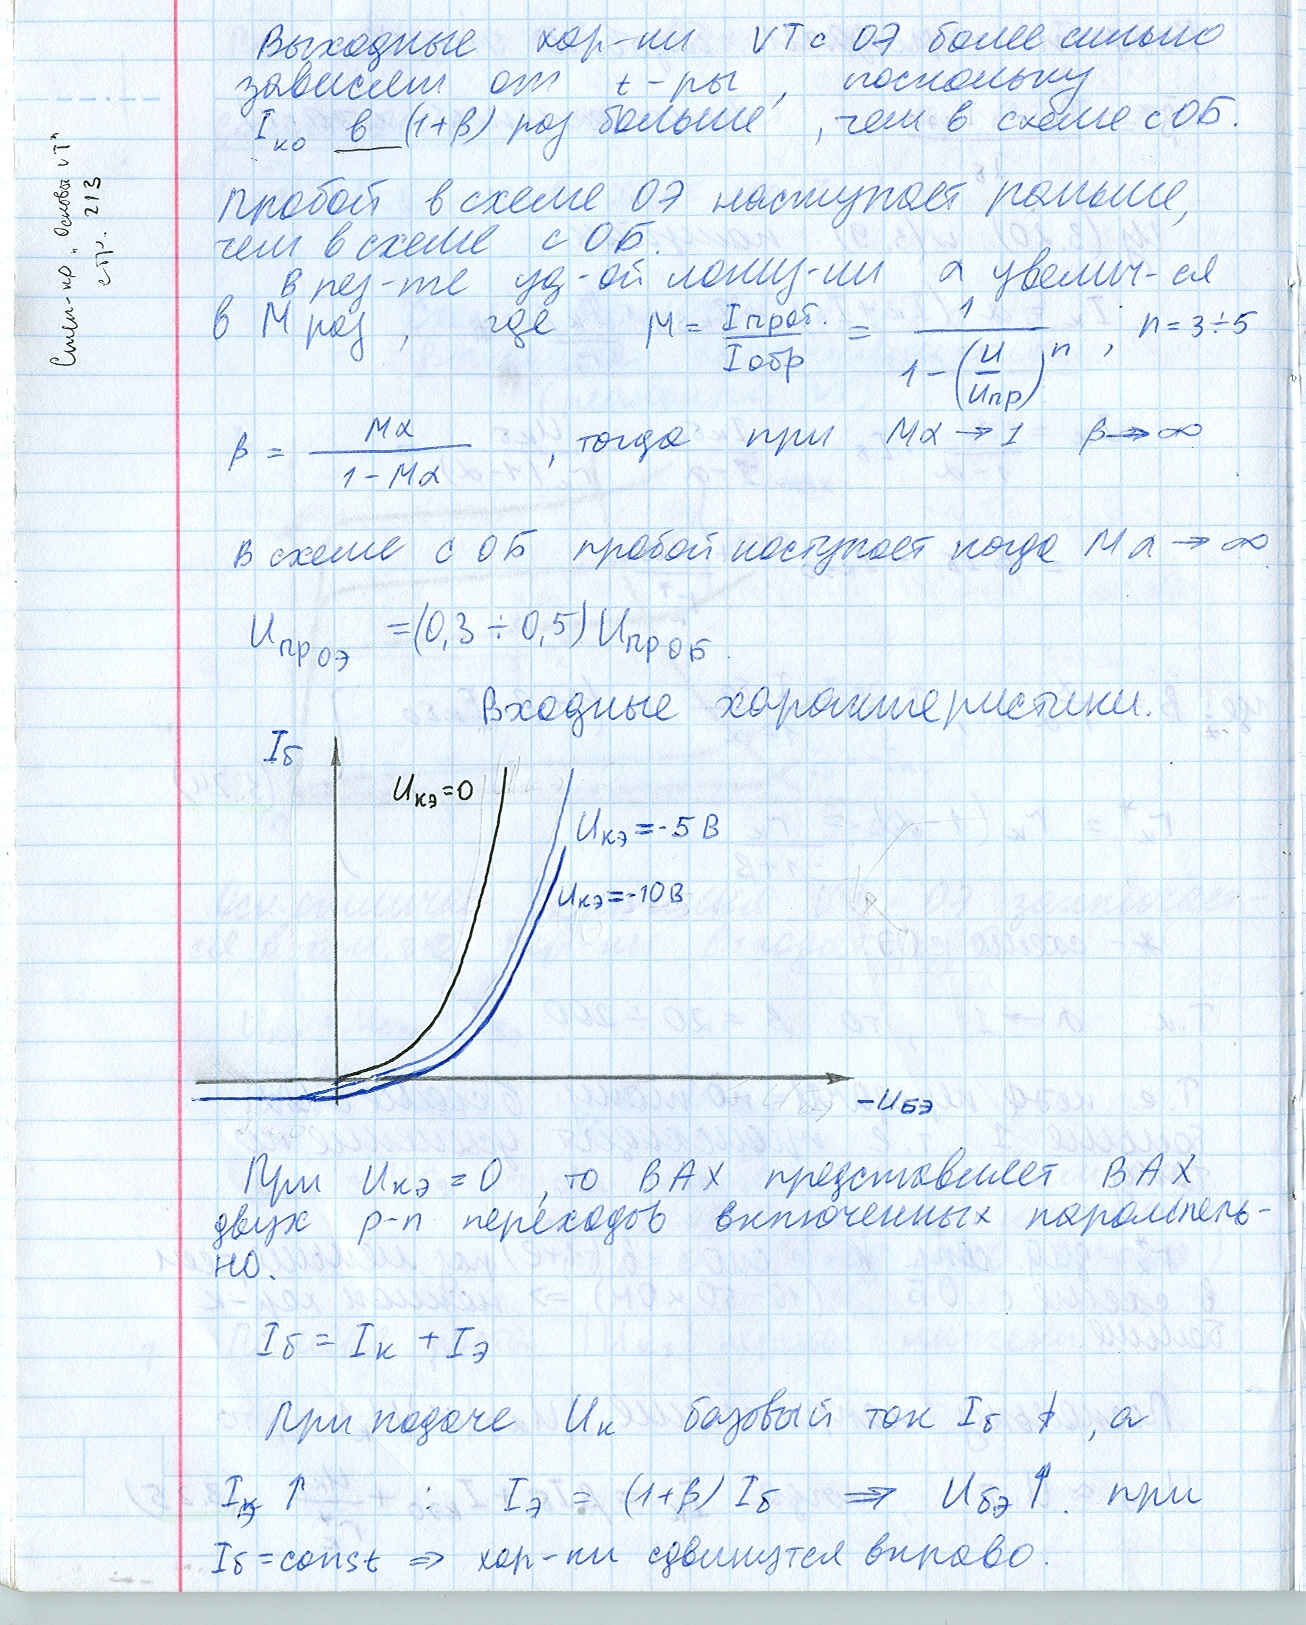 Выходные хар-ки VT с ОЭ более сильно
зависят от t-ры, поскольку
Iко в (1+β) раз больше, чем в схеме с ОБ.
Степ-ко „Основы VT"
стр. 213
Пробой в схеме ОЭ наступает раньше,
чем в схеме с ОБ.
В рез-те уд-ой иониз-ии α увелич-ся
в M раз, где M = Iпроб. / Iобр = 1 / (1 - (U/Uпр)^n) ; n = 3÷5
β = Mα / (1 - Mα), тогда при Mα → 1 β → ∞
В схеме с ОБ пробой наступает когда Mα → ∞
Uпр ОЭ = (0,3 ÷ 0,5) Uпр ОБ.
Входные характеристики.
Iб
Uкэ=0
Uкэ=-5В
Uкэ=-10В
-Uбэ
При Uкэ = 0, то ВАХ представляет ВАХ
двух p-n переходов включенных параллель-
но.
Iб = Iк + Iэ
При подаче Uк базовый ток Iб ↓, а
Iэ ↑ : Iэ = (1+β) Iб ⇒ Uбэ ↑. при
Iб = const ⇒ хар-ки сдвинутся вправо.